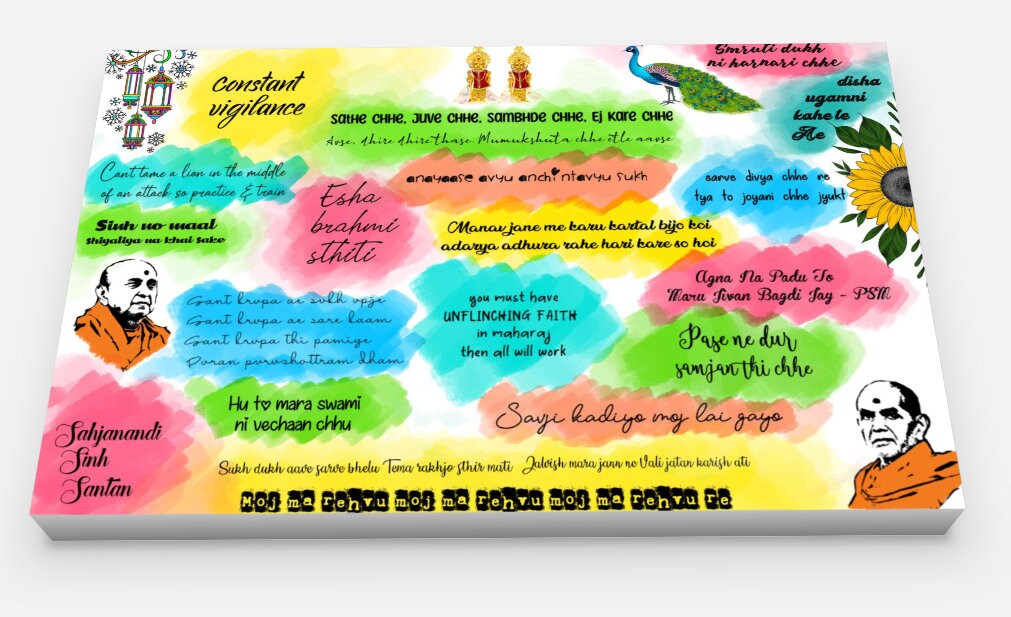 Constant
vigilance
Smruti dukh
ni harnari chhe
disha
ugamni
kahe te
Ae
Sathe chhe, Juve chhe, Sambhde chhe, Ej Kare chhe
Avse, dhire dhire thase. Mumukshuta chhe etle aavse
Cant tame a lion in the middle
of an attack so practice & train
Esha
brahmi
sthiti
anayaase avyu anchintavyu sukh
sarve divya chhe ne
tya to joyani chhe jyukt
Sinh no maal
shiyaliya na khai sake
Manav jane me karu kartal bijo koi
adarya adhura rahe hari kare so hoi
Agna Na Padu To
Maru Jivan Bagdi Jay - PSM
Sant krupa ae sukh upje
Sant krupa ae sare kaam
Sant krupa thi pamiye
Puran purushottram dham
you must have
UNFLINCHING FAITH
in maharaj
then all will work
Pase ne dur
samjan thi chhe
Hu to mara swami
ni vechaan chhu
Savji kadiyo moj lai gayo
Sahjanandi
Sinh
Santan
Sukh dukh aave sarve bhelu Tema rakhjo sthir mati Jalvish mara jann ne Vali jatan karish ati
Moj ma rehvu moj ma rehvu moj ma rehvu re